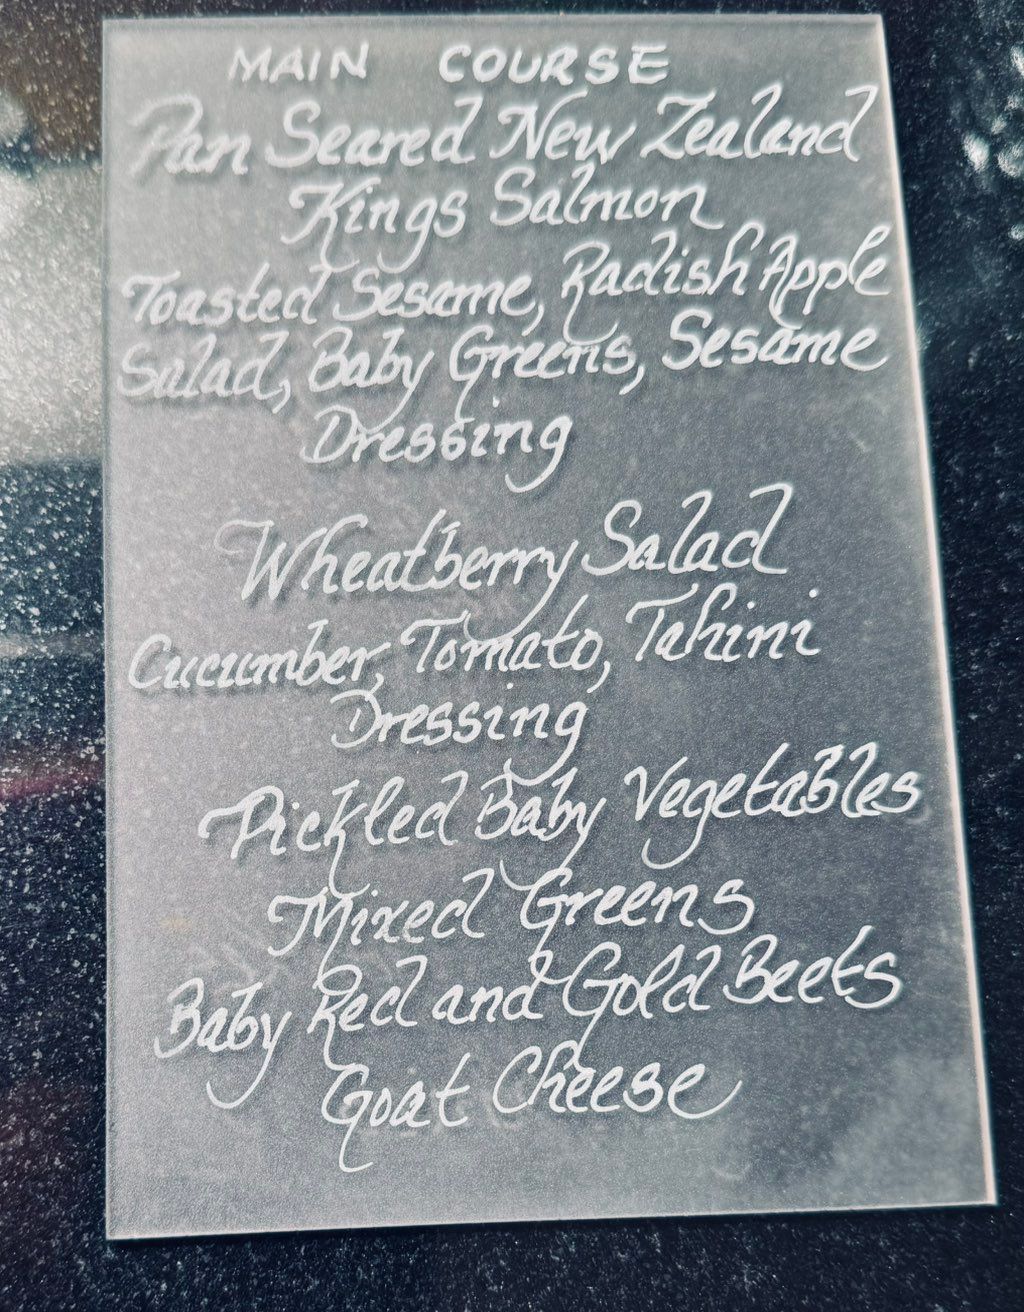 MAIN COURSE
Pan Seared New Zealand
Kings Salmon
Toasted Sesame, Radish Apple
Salad, Baby Greens, Sesame
Dressing
Wheatberry Salad
Cucumber, Tomato, Tahini
Dressing
Pickled Baby Vegetables
Mixed Greens
Baby Red and Gold Beets
Goat Cheese